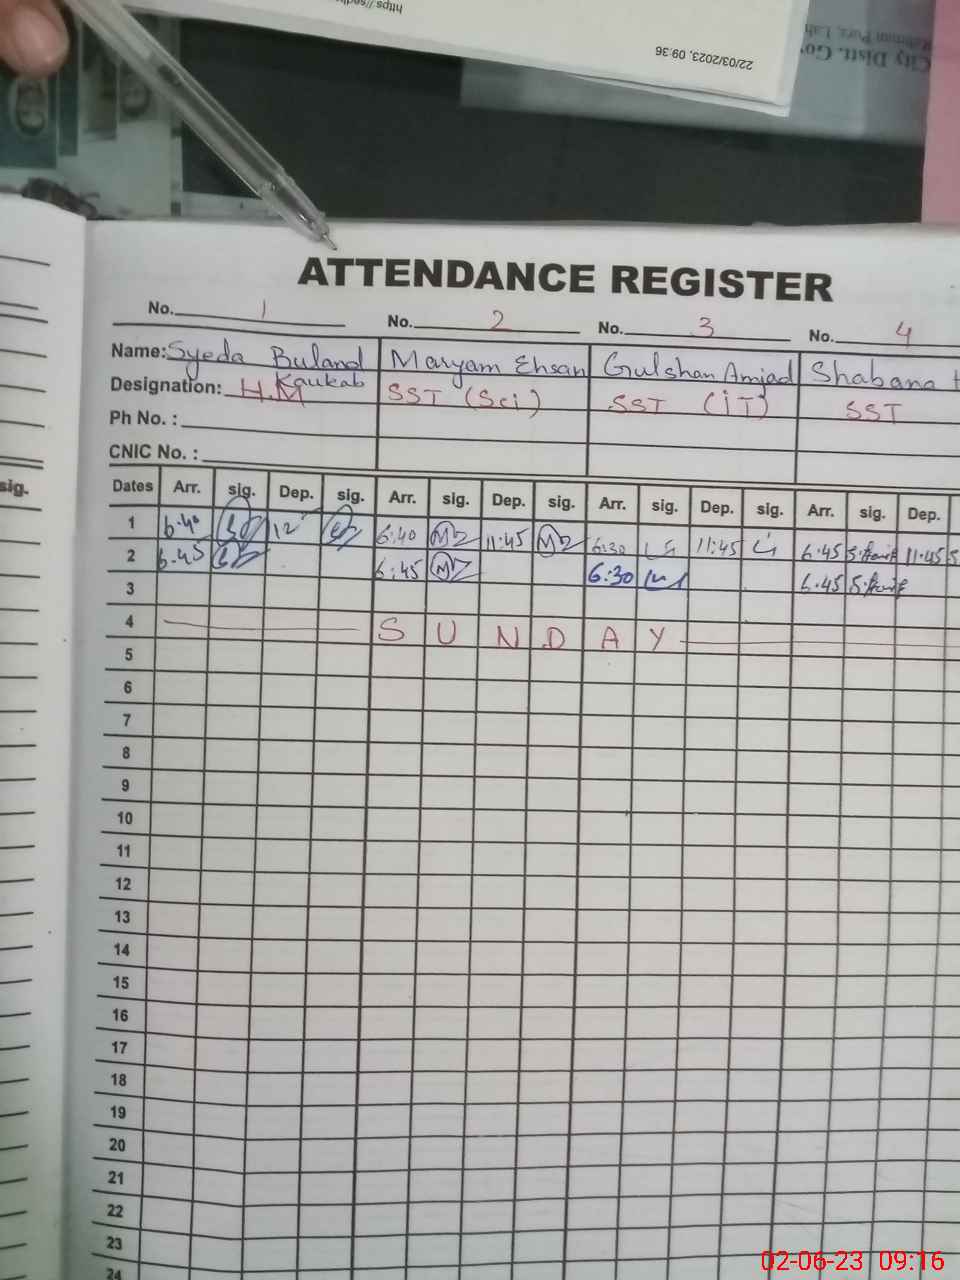 https://sed
22/03/2023, 09:36
City Distt. Go
ATTENDANCE REGISTER
No. 1 No. 2 No. 3 No. 4
Name: Syeda Buland Kaukab Maryam Ehsan Gulshan Amjad Shabana
Designation: H.M SST (Sci) SST (IT) SST
Ph No. :
CNIC No. :
sig.
Dates Arr. sig. Dep. sig. Arr. sig. Dep. sig. Arr. sig. Dep. sig. Arr. sig. Dep.
1 6.40 12 6:40 11:45 6:30 11:45 6.45 11.45
2 6.45 6:45 6:30 6.45
3
4 SUNDAY
5
6
7
8
9
10
11
12
13
14
15
16
17
18
19
20
21
22
23
24
02-06-23 09:16